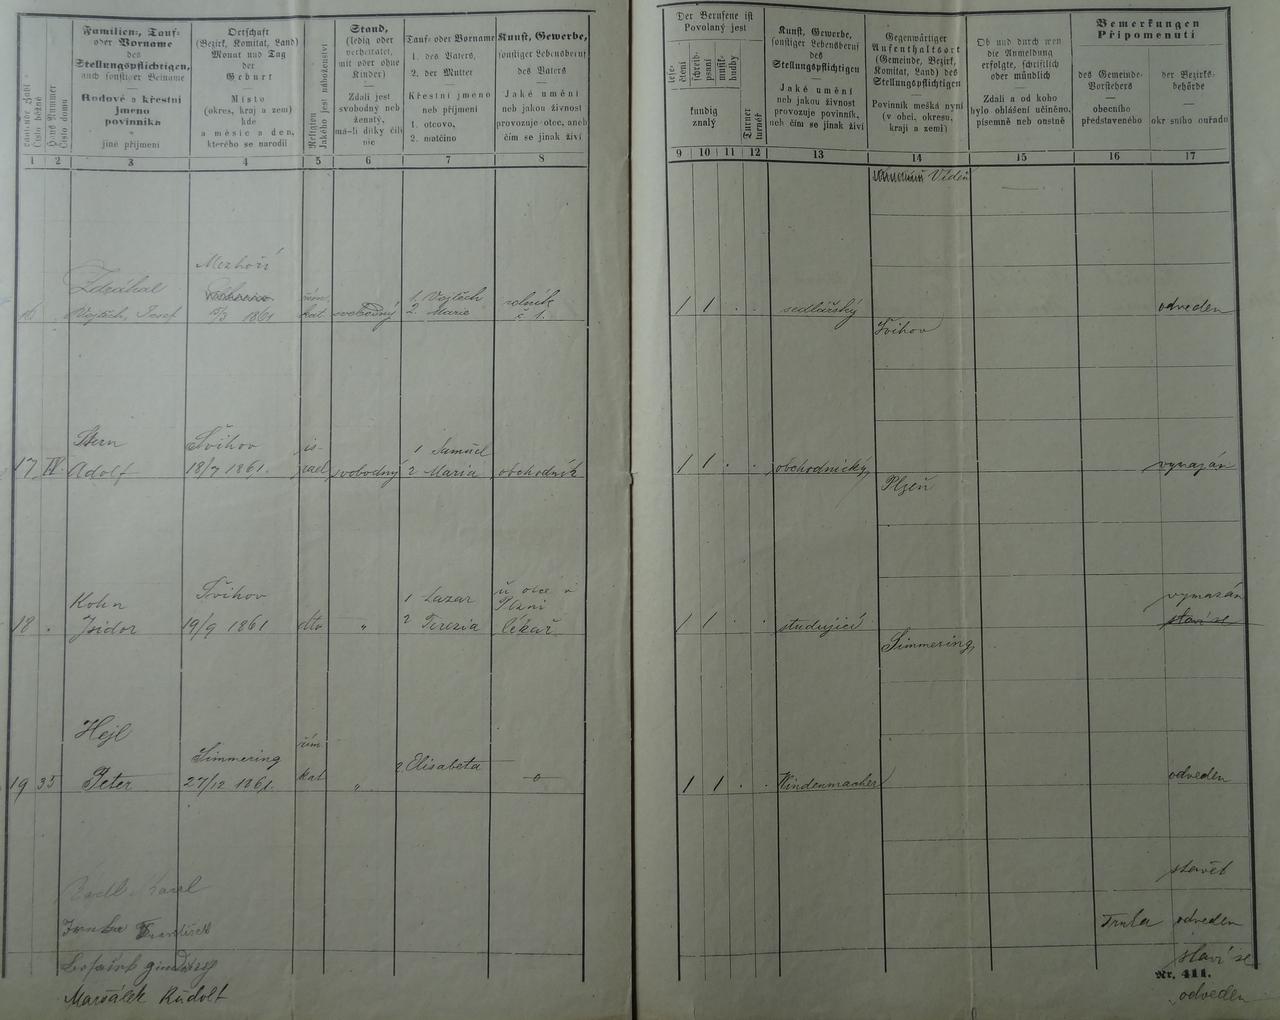 Laufende Zahl
Číslo běžné
Haus-Nummer
Číslo domu
Familien-, Tauf-
oder Vorname
des
Stellungspflichtigen,
auch sonstiger Beiname
Rodové a křestní
jmeno
povinníka
jiné přijmení
Ortschaft
(Bezirk, Komitat, Land)
Monat und Tag
der
Geburt
Místo
(okres, kraj a zemi)
kde
a měsíc a den,
kterého se narodil
Religion
Jakého jest náboženství
Stand,
(ledig oder
verheiratet,
mit oder ohne
Kinder)
Zdali jest
svobodný neb
ženatý,
má-li dítky čili
nic
Tauf- oder Vorname
1. des Vaters,
2. der Mutter
Křestní jmeno
neb přijmení
1. otcovo,
2. matčino
Kunst, Gewerbe,
sonstiger Lebensberuf
des Vaters
Jaké umění
neb jakou živnost
provozuje otec, aneb
čím se jinak živí
Der Berufene ist
Povolaný jest
čtení
psaní
hudby
kundig
znalý
Turner
turnéř
Kunst, Gewerbe,
sonstiger Lebensberuf
des
Stellungspflichtigen
Jaké umění
neb jakou živnost
provozuje povinník,
neb čím se jinak živí
Gegenwärtiger
Aufenthaltsort
(Gemeinde, Bezirk,
Komitat, Land) des
Stellungspflichtigen
Povinník mešká nyní
(v obci, okresu,
kraji a zemi)
Ob und durch wen
die Anmeldung
erfolgte, schriftlich
oder mündlich
Zdali a od koho
bylo ohlášení učiněno,
písemně neb oustně
Bemerkungen
Připomenutí
des Gemeinde-
Vorstehers
obecního
představeného
der Bezirks-
behörde
okresního ouřadu
1 2 3 4 5 6 7 8 9 10 11 12 13 14 15 16 17
Vídeň
Mezhoří
Zdráhal
Vojtěch, Josef
15/3 1861
řím.
kat.
svobodný
1. Vojtěch
2. Marie
rolník
č 1.
1 1 . . sedlářský
odveden
Švihov
17 IV. Stern
Adolf
Švihov
18/7 1861.
is-
rael
svobodný
1 Samuel
2 Maria
obchodník
1 1 . . obchodnický,
vymazán
Plzeň
18 . Kohn
Isidor
Švihov
19/9 1861
dtto
"
1 Lazar
2 Terezia
u otce v
Plzni
lékař
1 1 . . studující
vymazán
staví se
Simmering,
19 35 Hejl
Peter
Simmering
27/12 1861.
řím
kat
"
2 Elisabeta
o
1 1 . . Windenmacher
odveden
Karel
stavět
Trnka František
Trnka odveden
staví se
Nr. 411.
Maršálek Rudolf
odveden